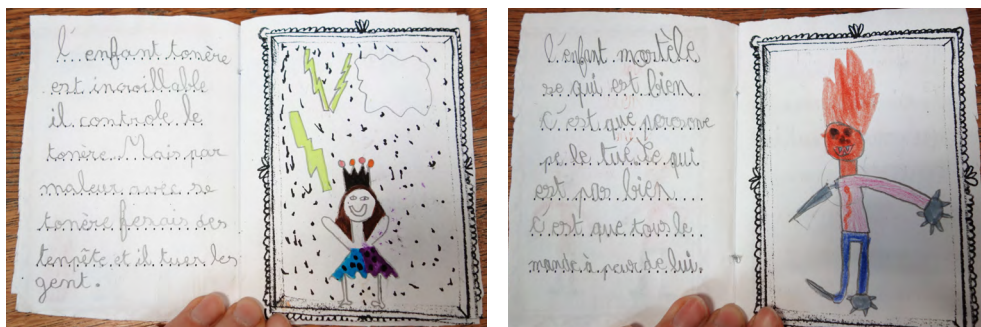 L'enfant tonère
est incroillable
il controle le
tonère. Mais par
maleur avec se
tonère ferais des
tempête et il tuer les
gent.
L'enfant mortèle
se qui est bien
C'est que persone
pe le tué Ce qui
est pas bien
C'est que tous le
monde à peur de lui.